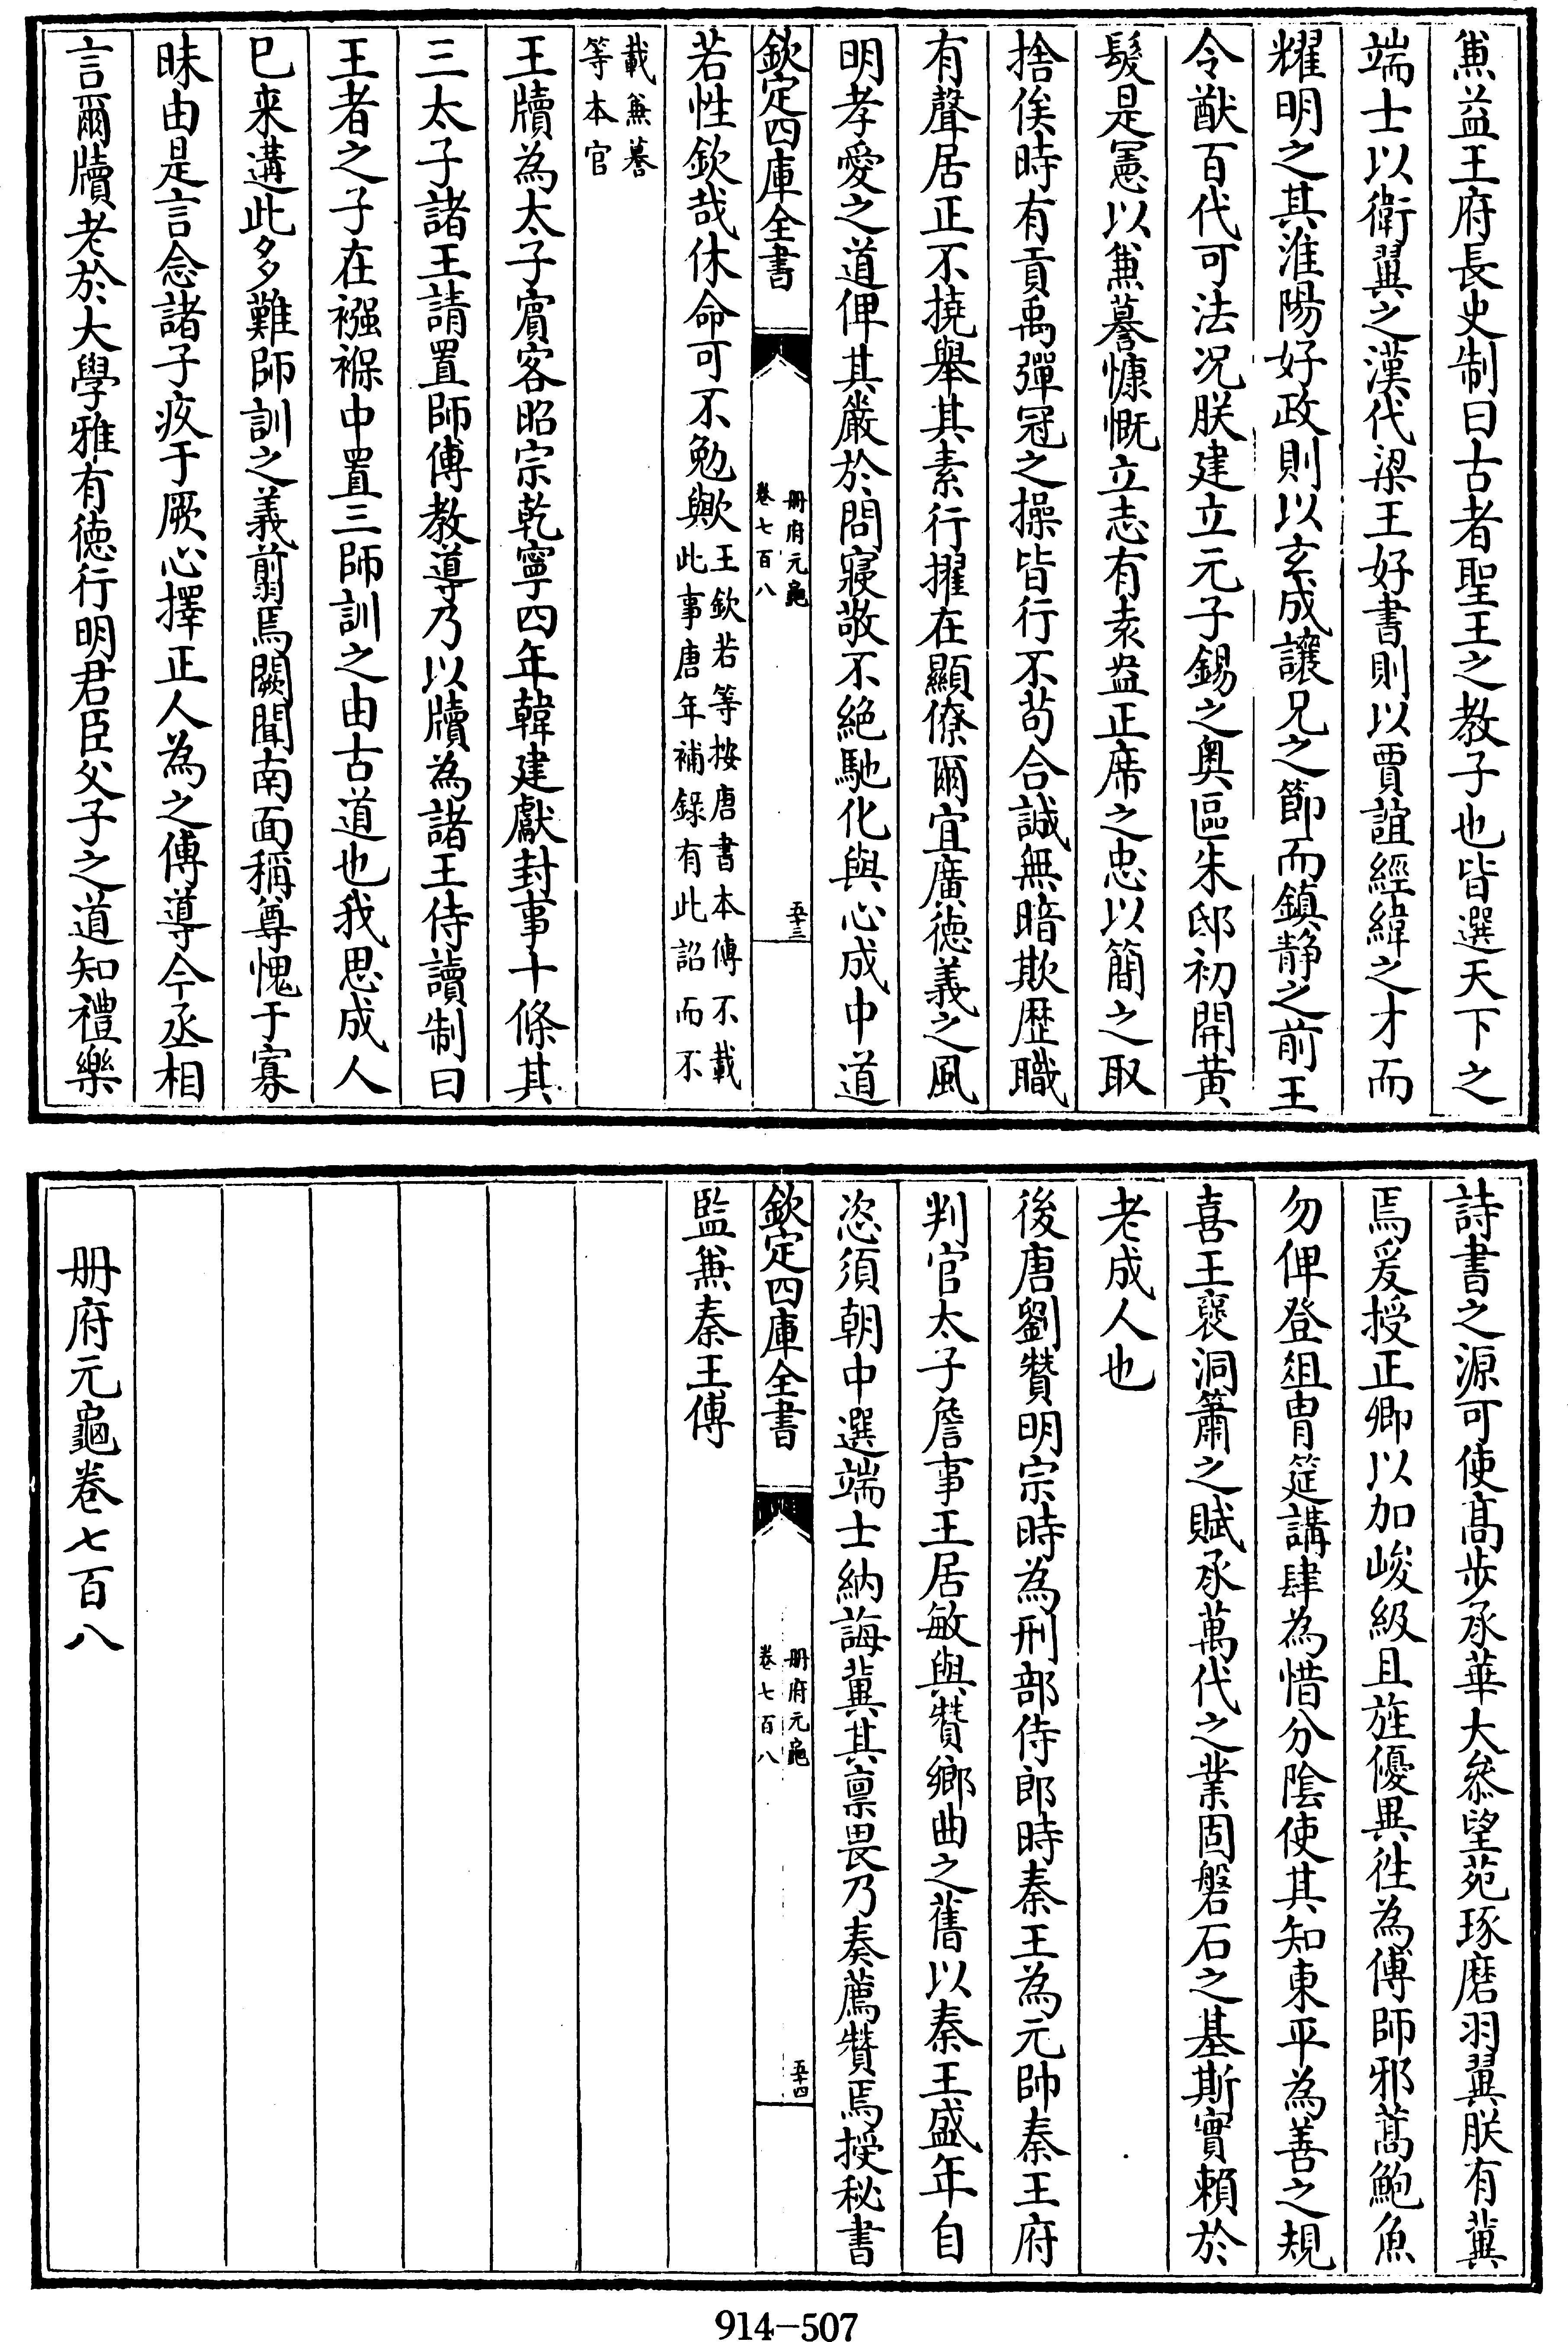 兼益王府長史制曰古者聖王之教子也皆選天下之
端士以衛翼之漢代梁王好書則以賈誼經緯之才而
耀明之其淮陽好政則以玄成讓兄之節而鎮静之前王
令猷百代可法况朕建立元子錫之奥區朱邸初開黄
髮是憲以兼謩慷慨立志有素盎正席之忠以簡之取
捨俟時有貢禹彈冠之操皆行不苟合誠無暗欺歴職
有聲居正不撓舉其素行擢在顯僚爾宜廣徳義之風
明孝愛之道俾其嚴於問寢敬不絶馳化與心成中道
欽定四庫全書
册府元龜
卷七百八
五十三
若性欽哉休命可不勉歟王欽若等按唐書本傳不載
此事唐年補録有此詔而不
載兼謩
等本官
王牘為太子賓客昭宗乾寧四年韓建獻封事十條其
三太子諸王請置師傅教導乃以牘為諸王侍讀制曰
王者之子在襁褓中置三師訓之由古道也我思成人
已来遘此多難師訓之義翦焉闕聞南面稱尊愧于寡
昧由是言念諸子疚于厥心擇正人為之傅導今丞相
言爾牘老於大學雅有徳行明君臣父子之道知禮樂
詩書之源可使髙步承華大叅望苑琢磨羽翼朕有冀
焉爰授正卿以加峻級且旌優異徃為傅師邪蒿鮑魚
勿俾登俎胄筵講肆為惜分陰使其知東平為善之規
喜王襃洞簫之賦承萬代之業固磐石之基斯實賴於
老成人也
後唐劉贊明宗時為刑部侍郎時秦王為元帥秦王府
判官太子詹事王居敏與贊鄉曲之舊以秦王盛年自
恣須朝中選端士納誨冀其禀畏乃奏薦贊焉授秘書
欽定四庫全書
册府元龜
卷七百八
五十四
監兼秦王傅
册府元龜卷七百八
914-507